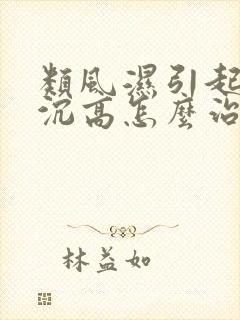 類風濕引起
沉高怎麼治
林益如